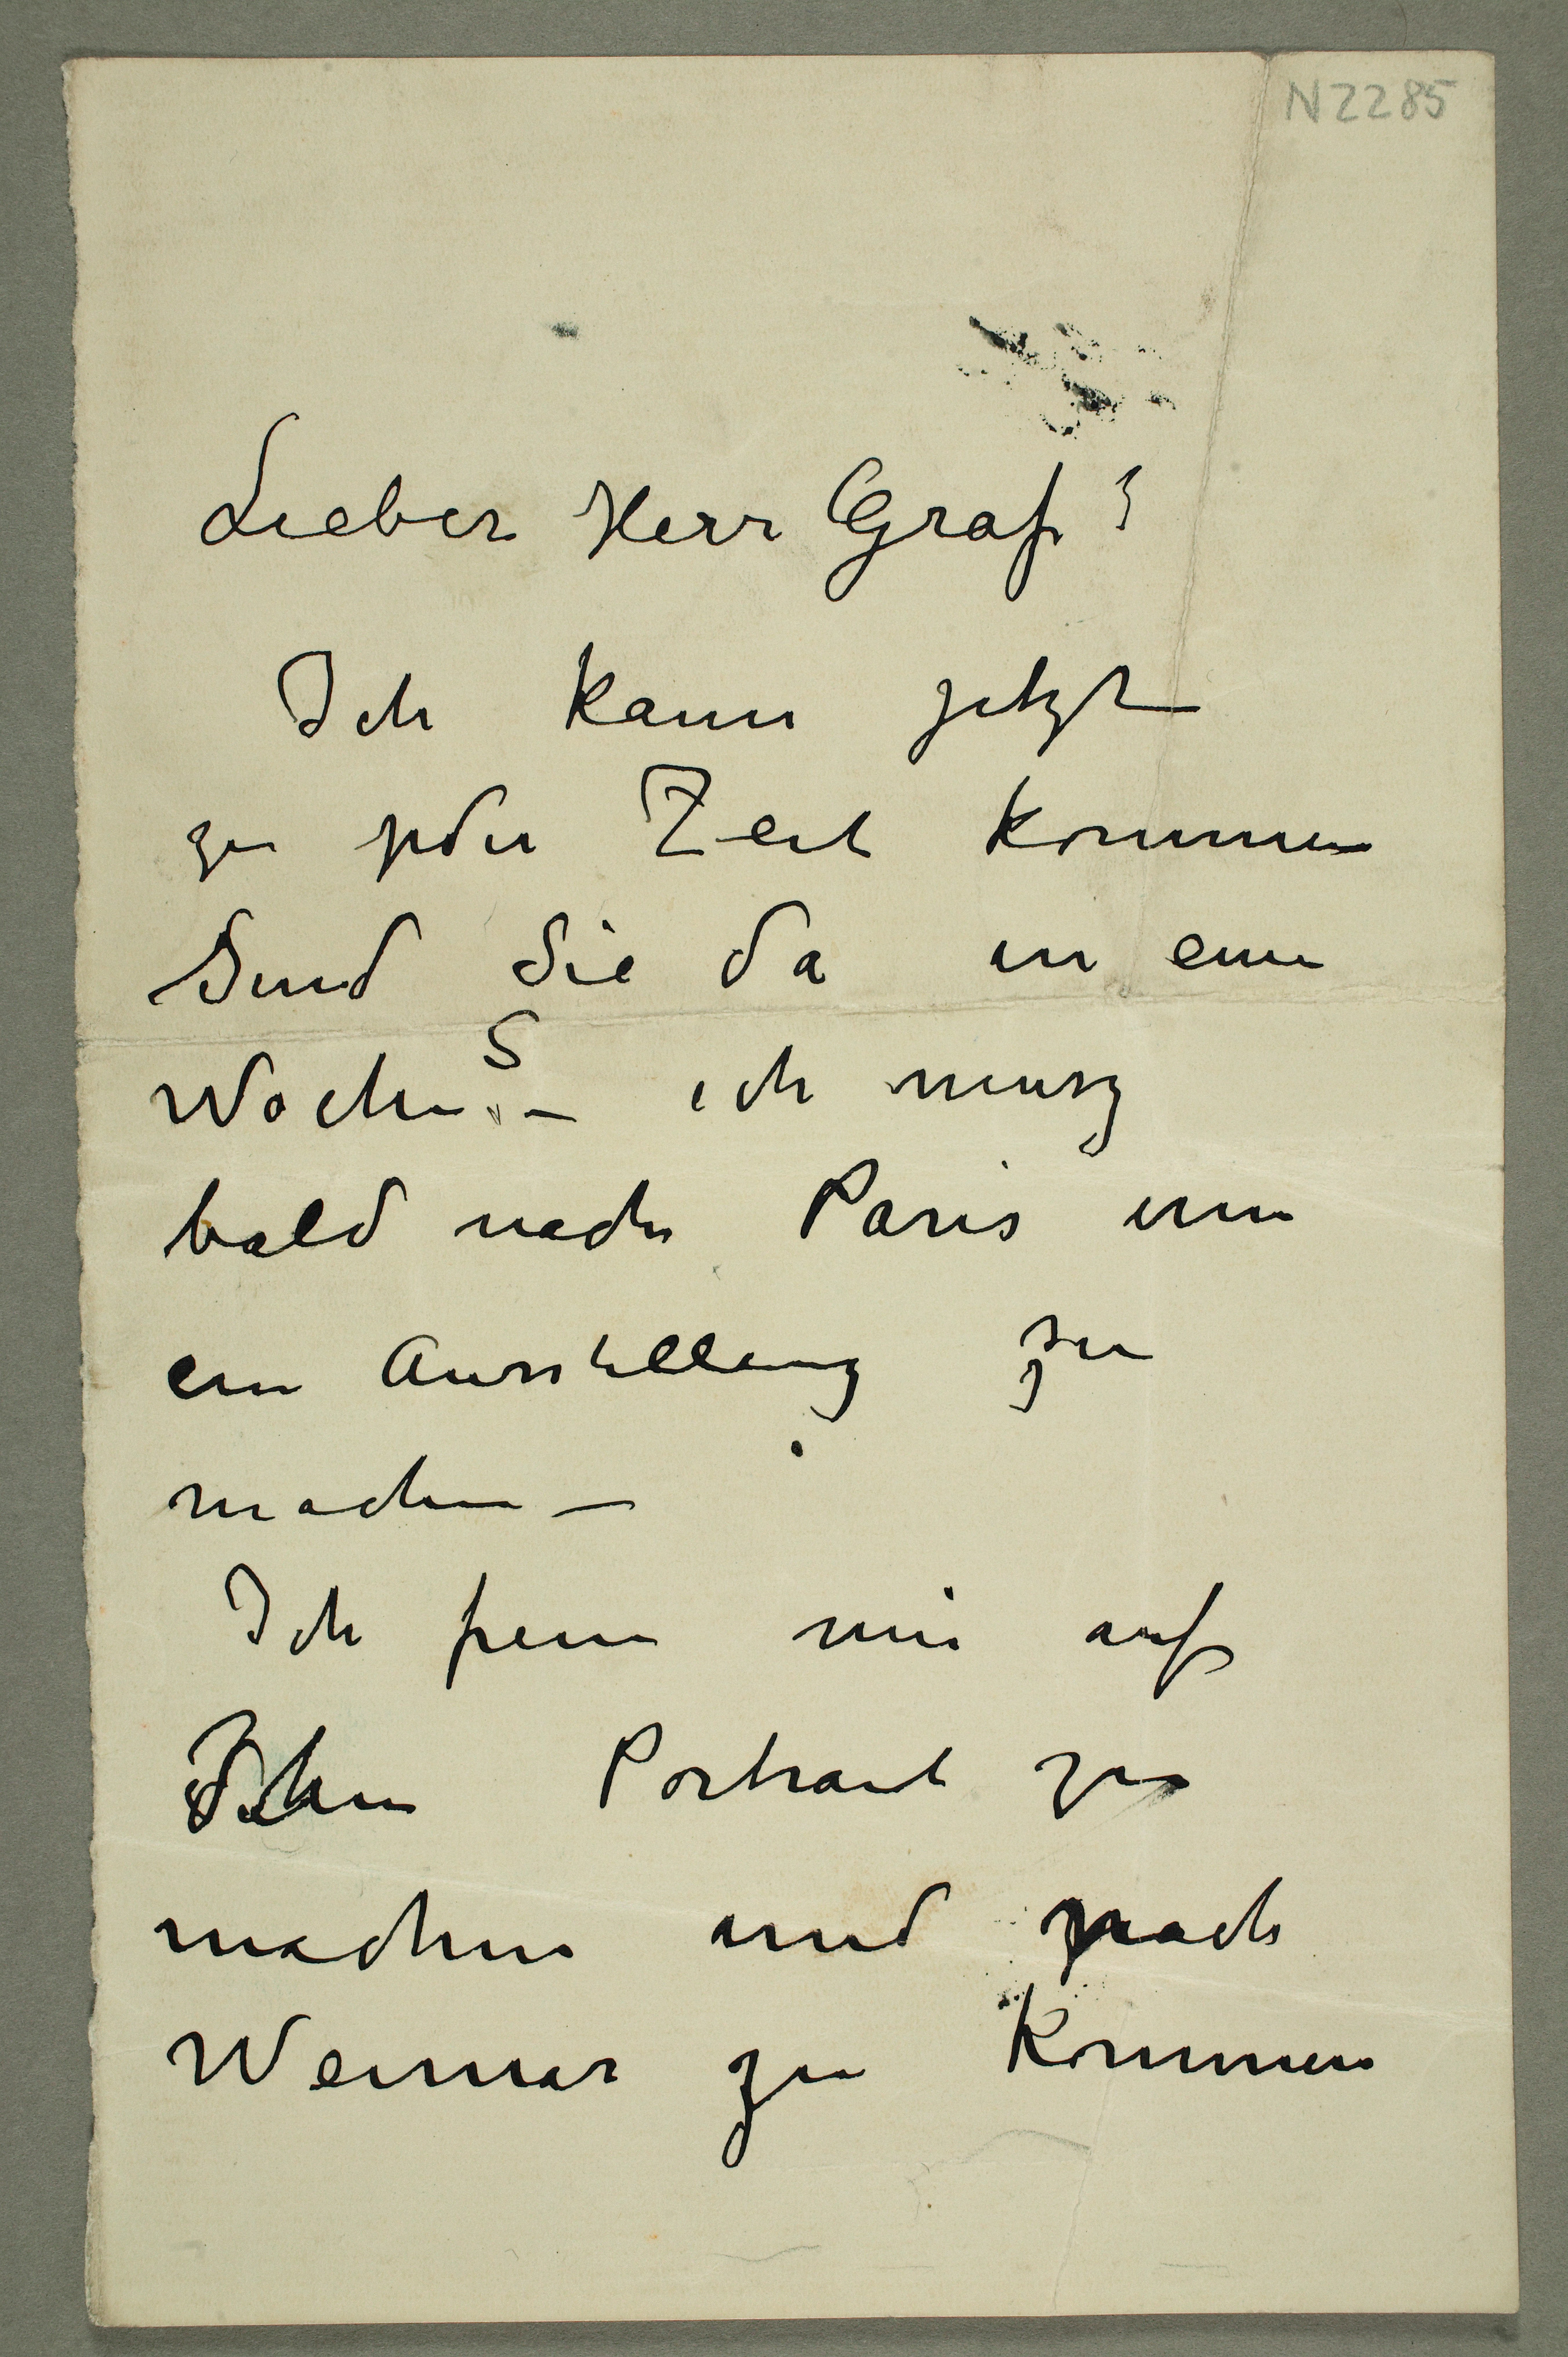 N 2285
Lieber Herr Graf!
Ich kann jetzt
zu jeder Zeit kommen
Sind Sie da in eine
Woche? – ich musz
bald nach Paris um
ein Ausstellung zu
machen –
Ich freue mir auf
Ihre Portrait zu
machen und nach
Weimar zu kommen